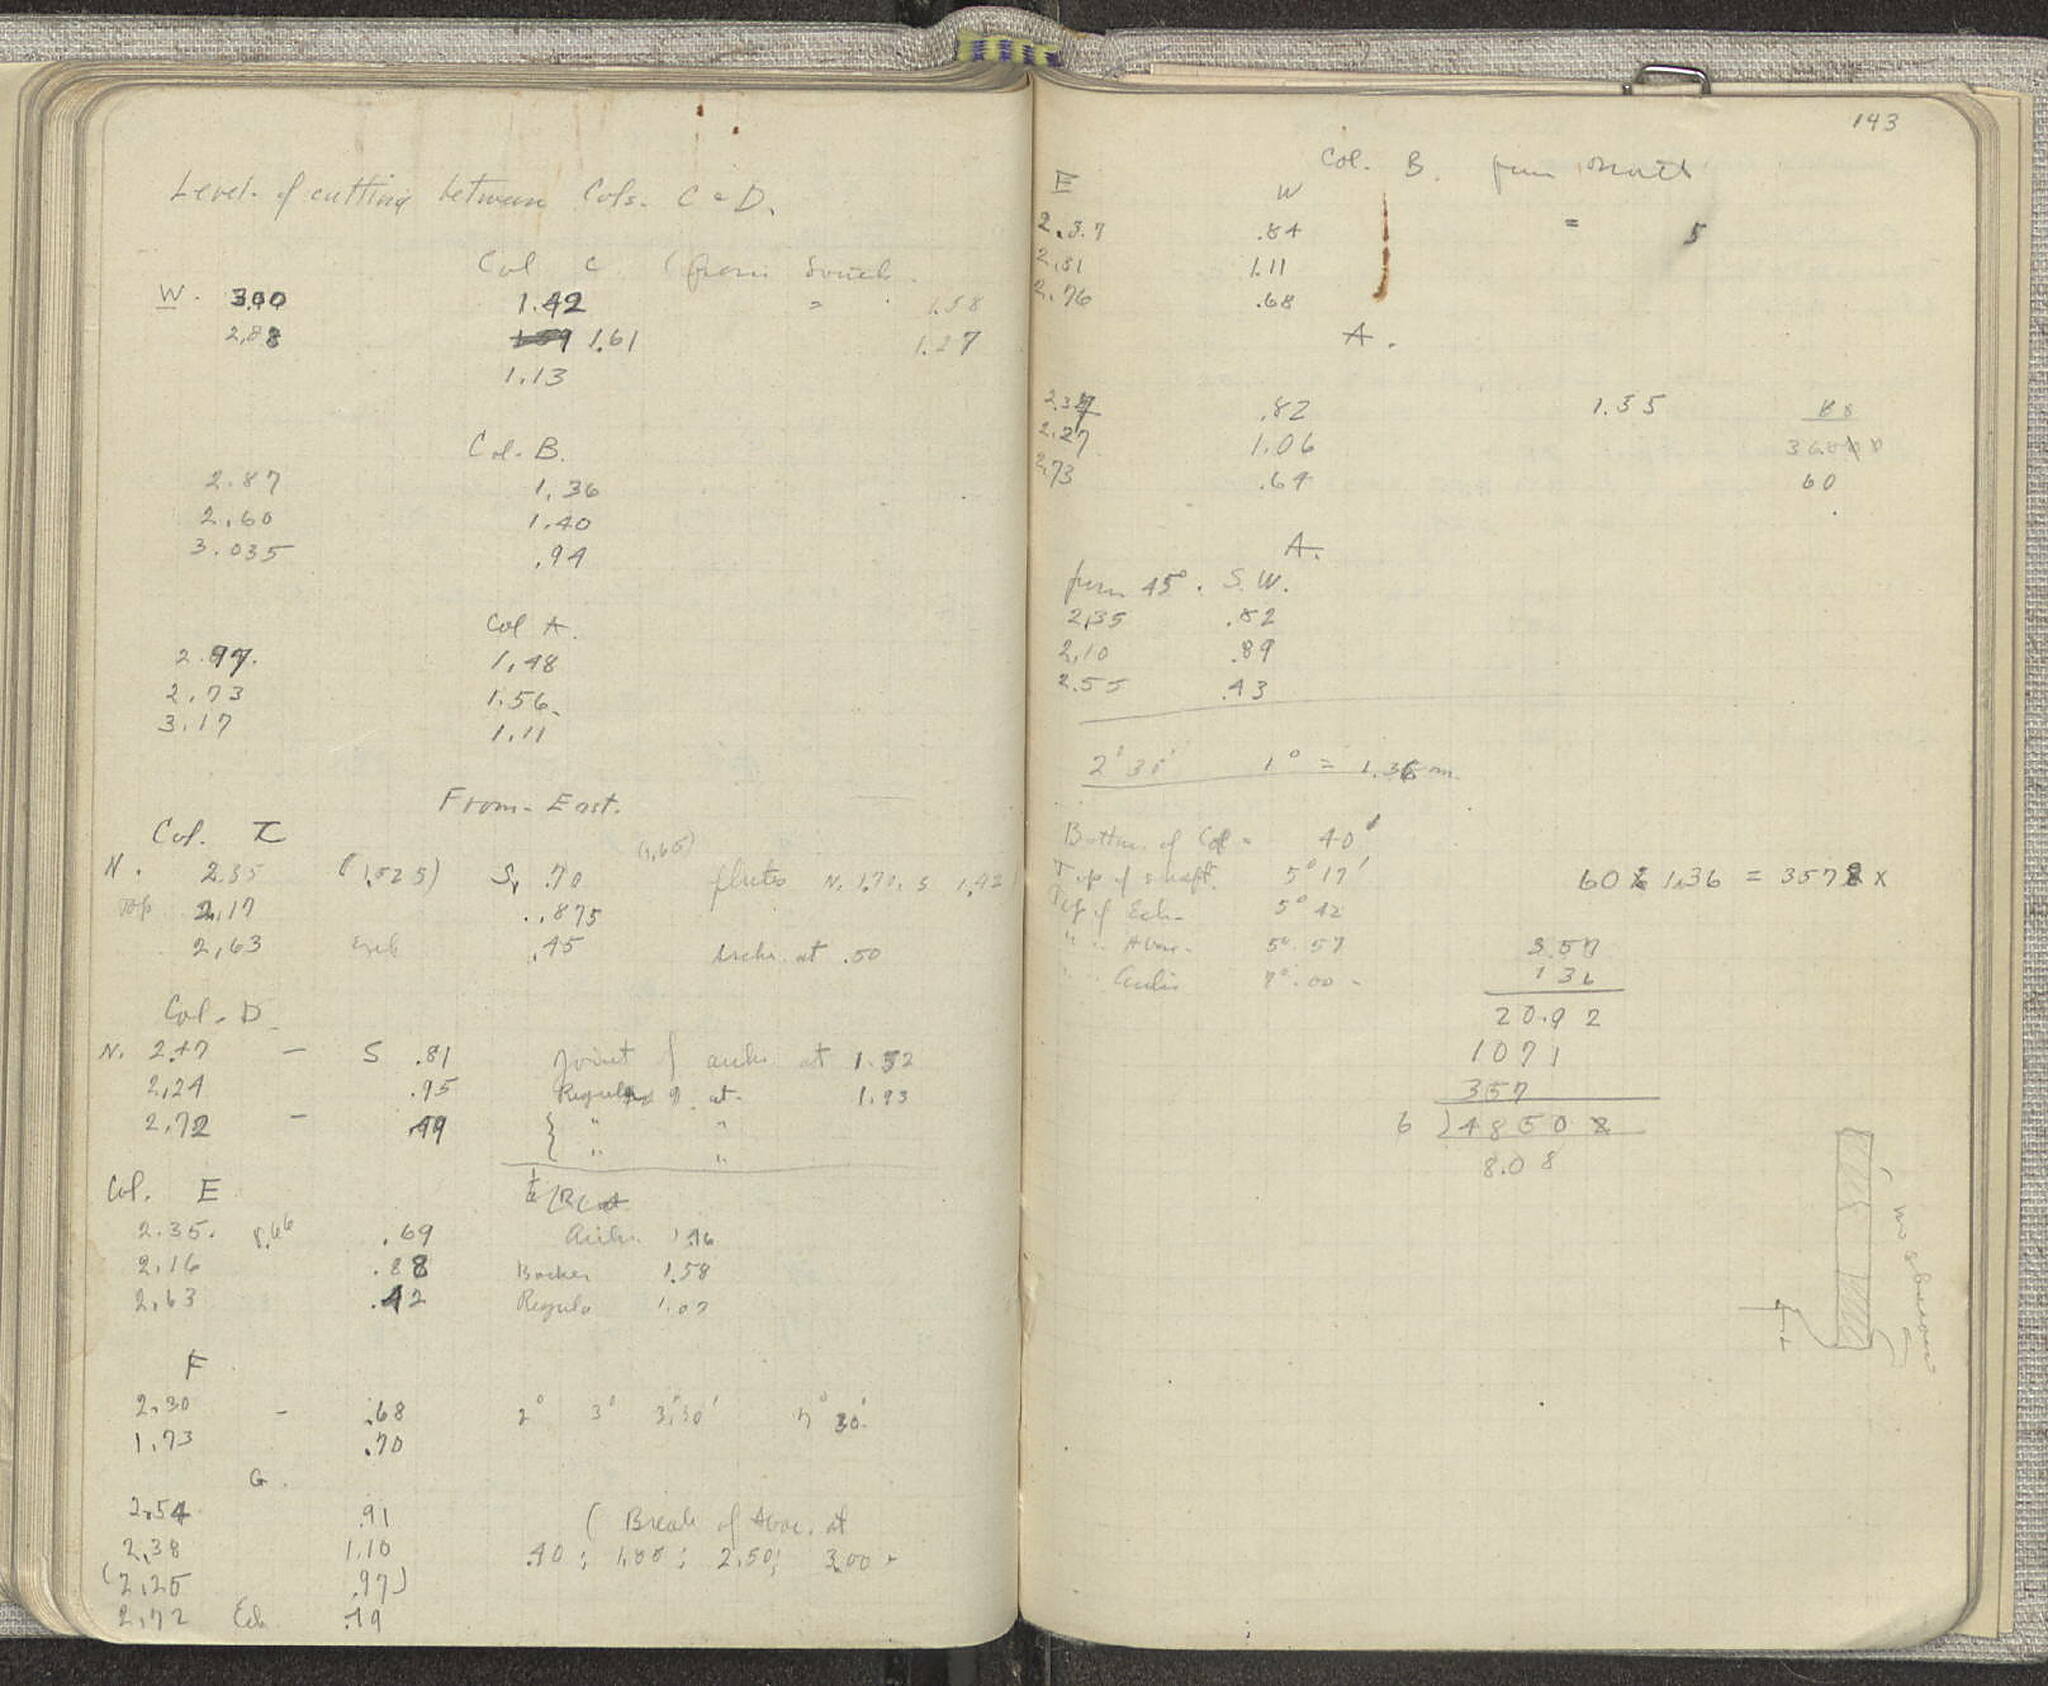 Level of cutting between Cols. C & D.
Col C (from South
W. 3.00 1.42 = 1.58
2.88 1.61 1.27
1.13
Col. B.
2.87 1.36
2.60 1.40
3.035 .94
Col A.
2.97. 1.48
2.73 1.56
3.17 1.11
From East.
Col.
N. 2.35 (1.525) S, .70 (1.65) flutes N. 1.70. S 1.92
Top 2.17 .875
2.63 Ech .45 Archi. at .50
Col. D
N. 2.47 – S .81 Joint of archi at 1.52
2.24 .95 Regula at 1.93
2.72 – .49 " "
" "
Col. E
2.35. 1.66 .69 Archi. 1.46
2.16 .88 1.58
2.63 .42 Regula 1.07
F
2.30 – .68 2° 3° 3°.30' 7° 30'
1.73 .70
G.
2.54 .91 ( Break of Abac. at
2.38 1.10 .40 ; 1.00 ; 2.50; 3.00
(2.25 .97)
2.72 Ech .49
143
Col. B. from South
E W
2.37 .84 = 5
2.81 1.11
2.76 .68
A.
2.37 .82 1.35
2.27 1.06
2.73 .64 60
A.
from 45°. S.W.
2.35 .82
2.10 .89
2.55 .43
2° 30' 1° = 1.36 m.
Bottom of Col = 40'
Top of shaft. 5° 17'
Top of Ech. 5° 42
" " Abac. 5° 57
" " 7°.00 -
60 1.36 = 357 x
3.57
136
20.92
1071
357
6 ) 4850
8.08